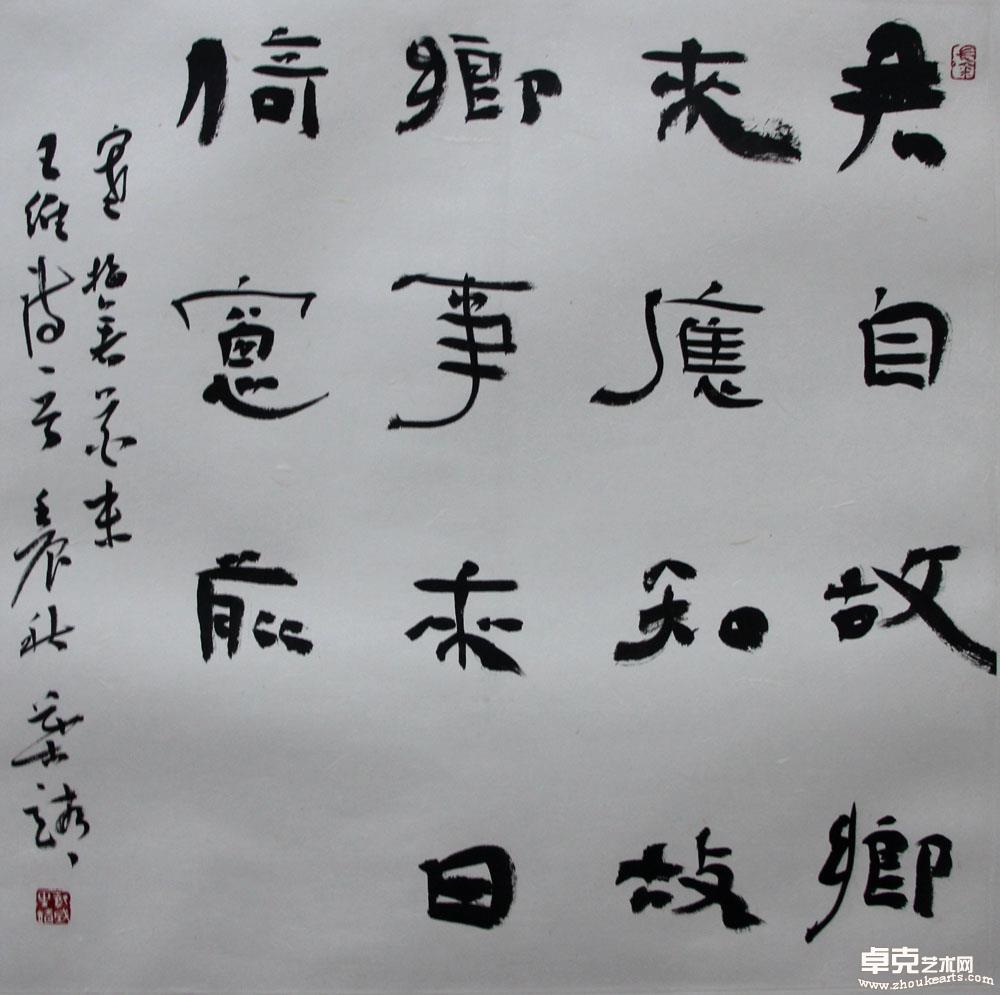 君自故鄉
来應知故
鄉事来日
倚窻前
寒梅著花未
王維詩一首 壬辰秋
卓克艺术网
www.zhoukearts.com